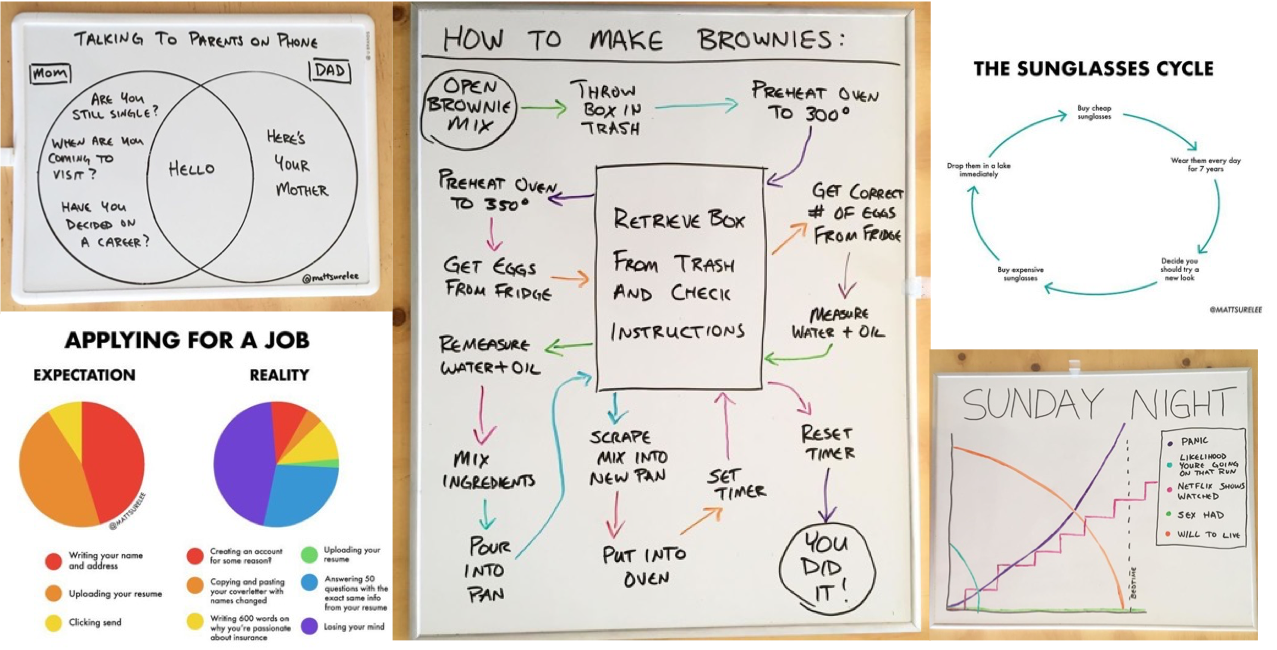 TALKING TO PARENTS ON PHONE
MOM
DAD
ARE YOU
STILL SINGLE?
WHEN ARE YOU
COMING TO
VISIT?
HAVE YOU
DECIDED ON
A CAREER?
HELLO
HERE'S
YOUR
MOTHER
@mattsurelee
APPLYING FOR A JOB
EXPECTATION
REALITY
@MATTSURELEE
Writing your name
and address
Uploading your resume
Clicking send
Creating an account
for some reason?
Copying and pasting
your coverletter with
names changed
Writing 600 words on
why you're passionate
about insurance
Uploading your
resume
Answering 50
questions with the
exact same info
from your resume
Losing your mind
HOW TO MAKE BROWNIES:
OPEN
BROWNIE
MIX
THROW
BOX IN
TRASH
PREHEAT OVEN
TO 300°
RETRIEVE BOX
FROM TRASH
AND CHECK
INSTRUCTIONS
PREHEAT OVEN
TO 350°
GET EGGS
FROM FRIDGE
GET CORRECT
# OF EGGS
FROM FRIDGE
MEASURE
WATER + OIL
REMEASURE
WATER + OIL
MIX
INGREDIENTS
POUR
INTO
PAN
SCRAPE
MIX INTO
NEW PAN
PUT INTO
OVEN
SET
TIMER
RESET
TIMER
YOU
DID
IT!
THE SUNGLASSES CYCLE
Buy cheap
sunglasses
Wear them every day
for 7 years
Decide you
should try a
new look
Buy expensive
sunglasses
Drop them in a lake
immediately
@MATTSURELEE
SUNDAY NIGHT
PANIC
LIKELIHOOD
YOU'RE GOING
ON THAT RUN
NETFLIX SHOWS
WATCHED
SEX HAD
WILL TO LIVE
BEDTIME